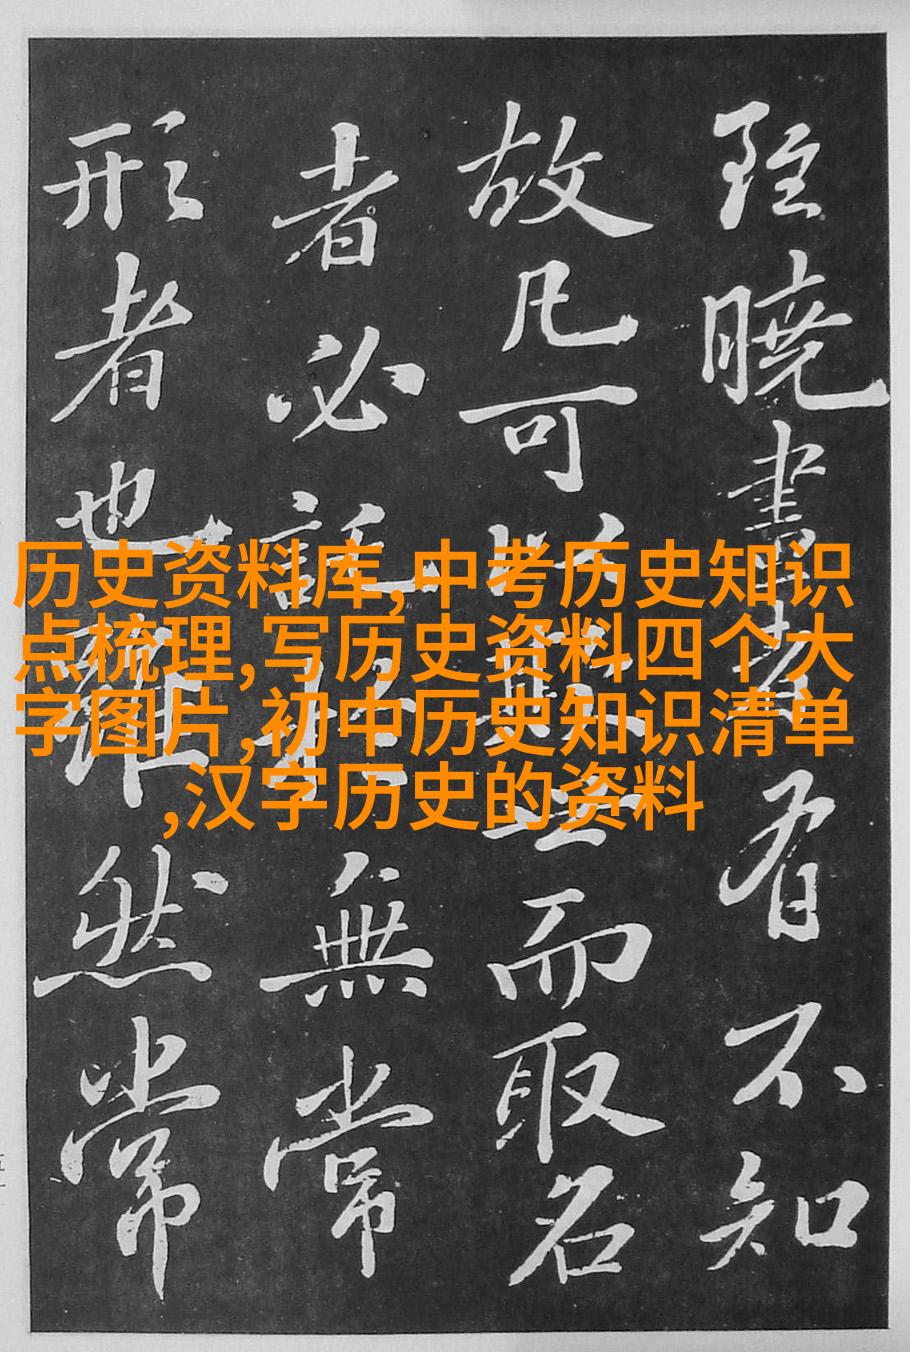 至曉畫者有不知
故凡可以欺世而取名
者必託於無常
形者也雖然常
历史资料库,中考历史知识
点梳理,写历史资料四个大
字图片,初中历史知识清单
,汉字历史的资料